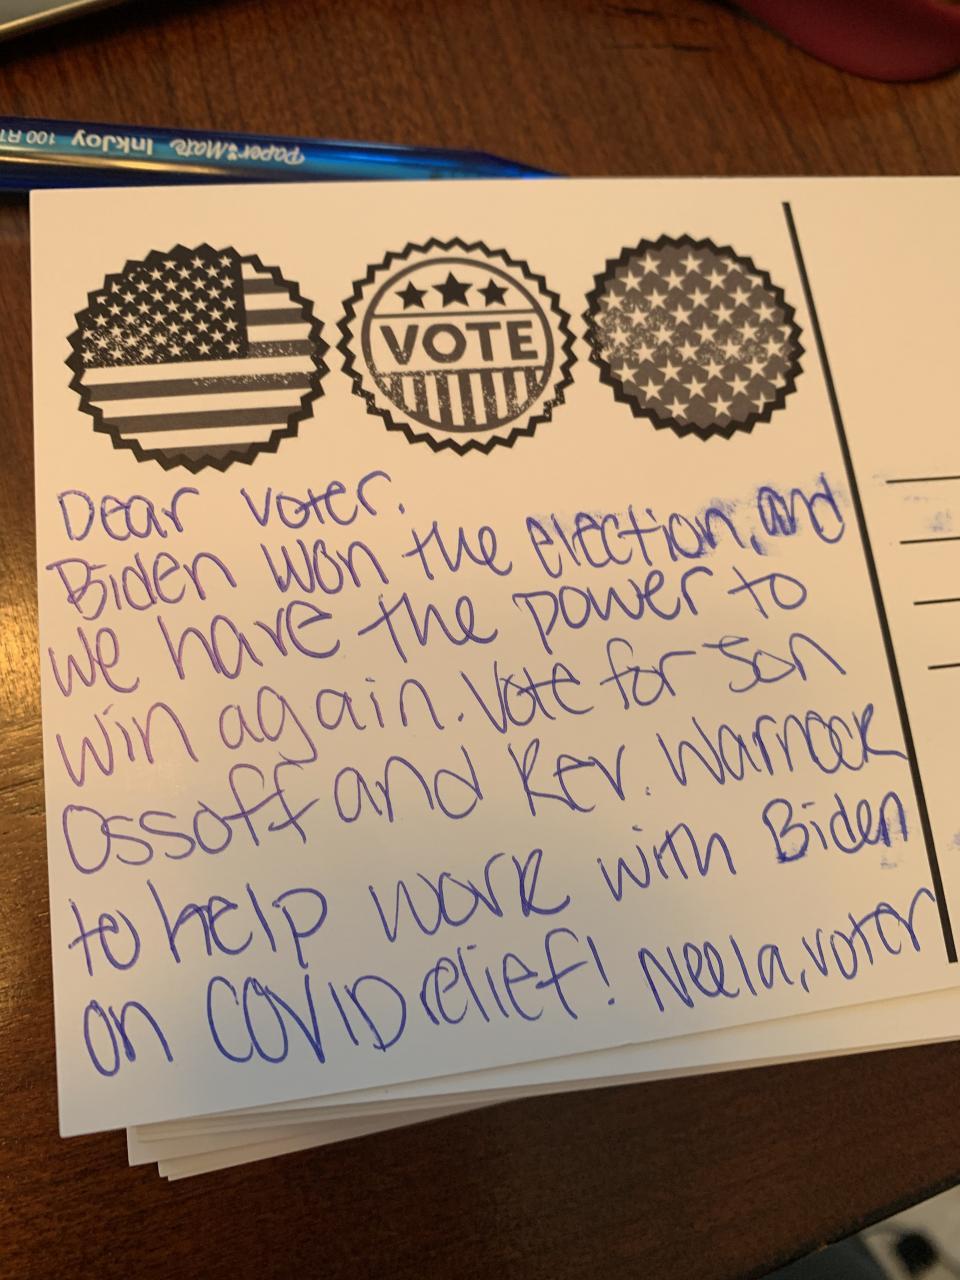 Paper Mate InkJoy 100 RT
VOTE
Dear voter,
Biden won the election, and
we have the power to
win again. Vote for Jon
Ossoff and Rev. Warnock
to help work with Biden
on COVID relief! Neela, voter